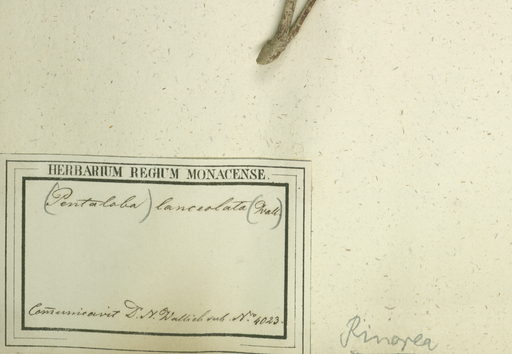 HERBARIUM REGIUM MONACENSE.
(Pentaloba) lanceolata (Wall)
Com̄unicavit D. N. Wallich sub. No. 4023.
Rinorea